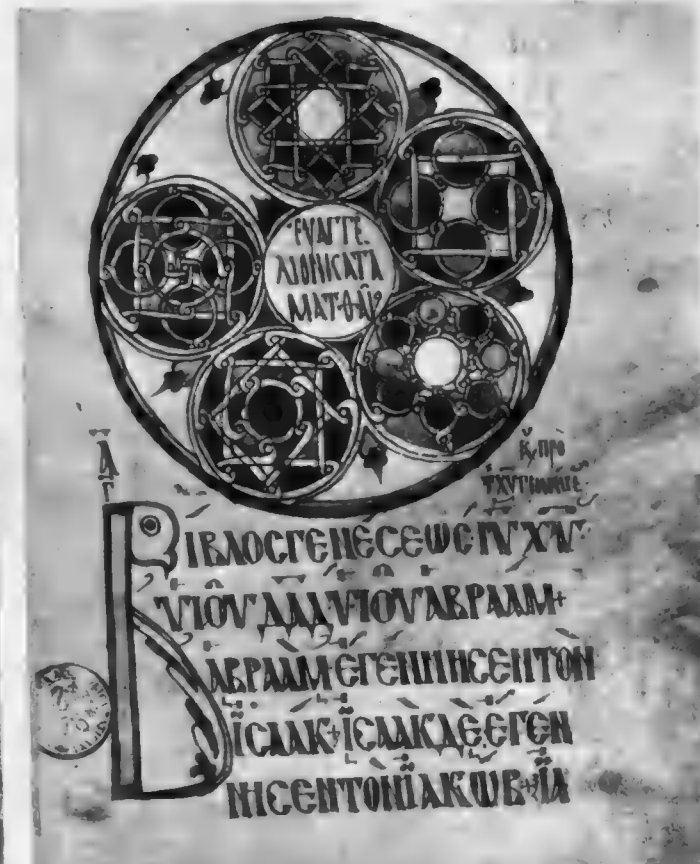 ΕΥΑΓΓΕ
ΛΙΟΝ ΚΑΤΑ
ΜΑΤΘΑΙ͂Ο
Κ͵ ΠΡΟ
ΒΙΒΛΟC ΓΕΝΕCΕΩC ΙΥ ΧΥ
ΥΙΟΥ ΔΑΔ ΥΙΟΥ ΑΒΡΑΑΜ+
ΑΒΡΑΑΜ ΕΓΕΝΝΗCΕΝ ΤΟΝ
ΪCΑΑΚ+ ΪCΑΑΚ ΔΕ ΕΓΕΝ
ΝΗCΕΝ ΤΟΝ ΪΑΚΩΒ+ ΪΑ